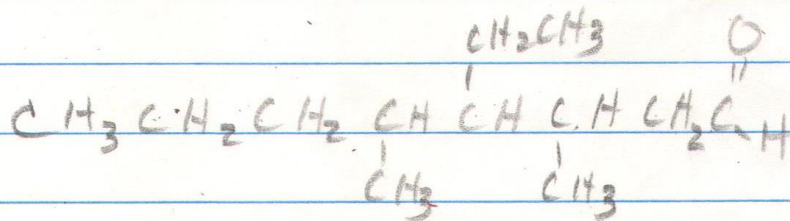 CH2CH3 O
CH3CH2CH2CHCHCHCH2C-H
CH3 CH3